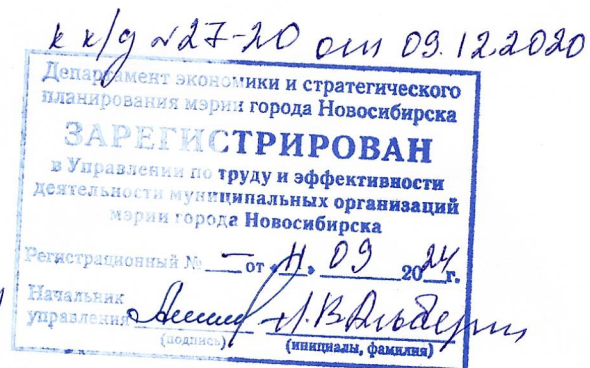 к к/д №27-20 от 09.12.2020
Департамент экономики и стратегического
планирования мэрии города Новосибирска
ЗАРЕГИСТРИРОВАН
в Управлении по труду и эффективности
деятельности муниципальных организаций
мэрии города Новосибирска
Регистрационный № — от «11» 09 2024г.
Начальник
управления Л.В.
(подпись) (инициалы, фамилия)